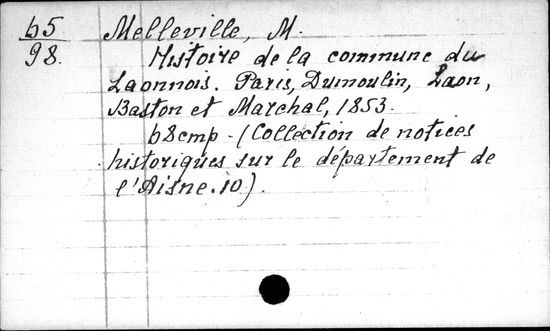 65
98.
Melleville, M.
Histoire de la commune du
Laonnois. Paris, Dumoulin, Laon,
Baston et Marchal, 1853.
68 стр. (Collection de notices
historiques sur le département de
l'Aisne. 10).